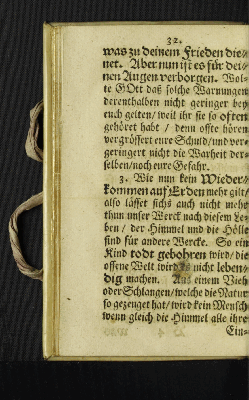 32.
was zu deinem Frieden die-
net. Aber nun ist es für dei-
nen Augen verborgen. Wol-
te GOtt daß solche Warnungen
derenthalben nicht geringer bey
euch gelten/ weil ihr sie so offten
gehöret habt / denn offte hören
vergrössert eure Schuld/und ver-
geringert nicht die Warheit der-
selben/noch eure Gefahr.
3. Wie nun kein Wieder-
kommen auf Erden mehr gilt/
also lässet sichs auch nicht mehr
thun unser Werck nach diesem Le-
ben / der Himmel und die Hölle
sind für andere Wercke. So ein
Kind todt gebohren wird/ die
offene Welt wird es nicht leben-
dig machen. Aus einem Vieh
oder Schlangen/ welche die Natur
so gezeuget hat/ wird kein Mensch
wenn gleich die Himmel alle ihre
Ein-